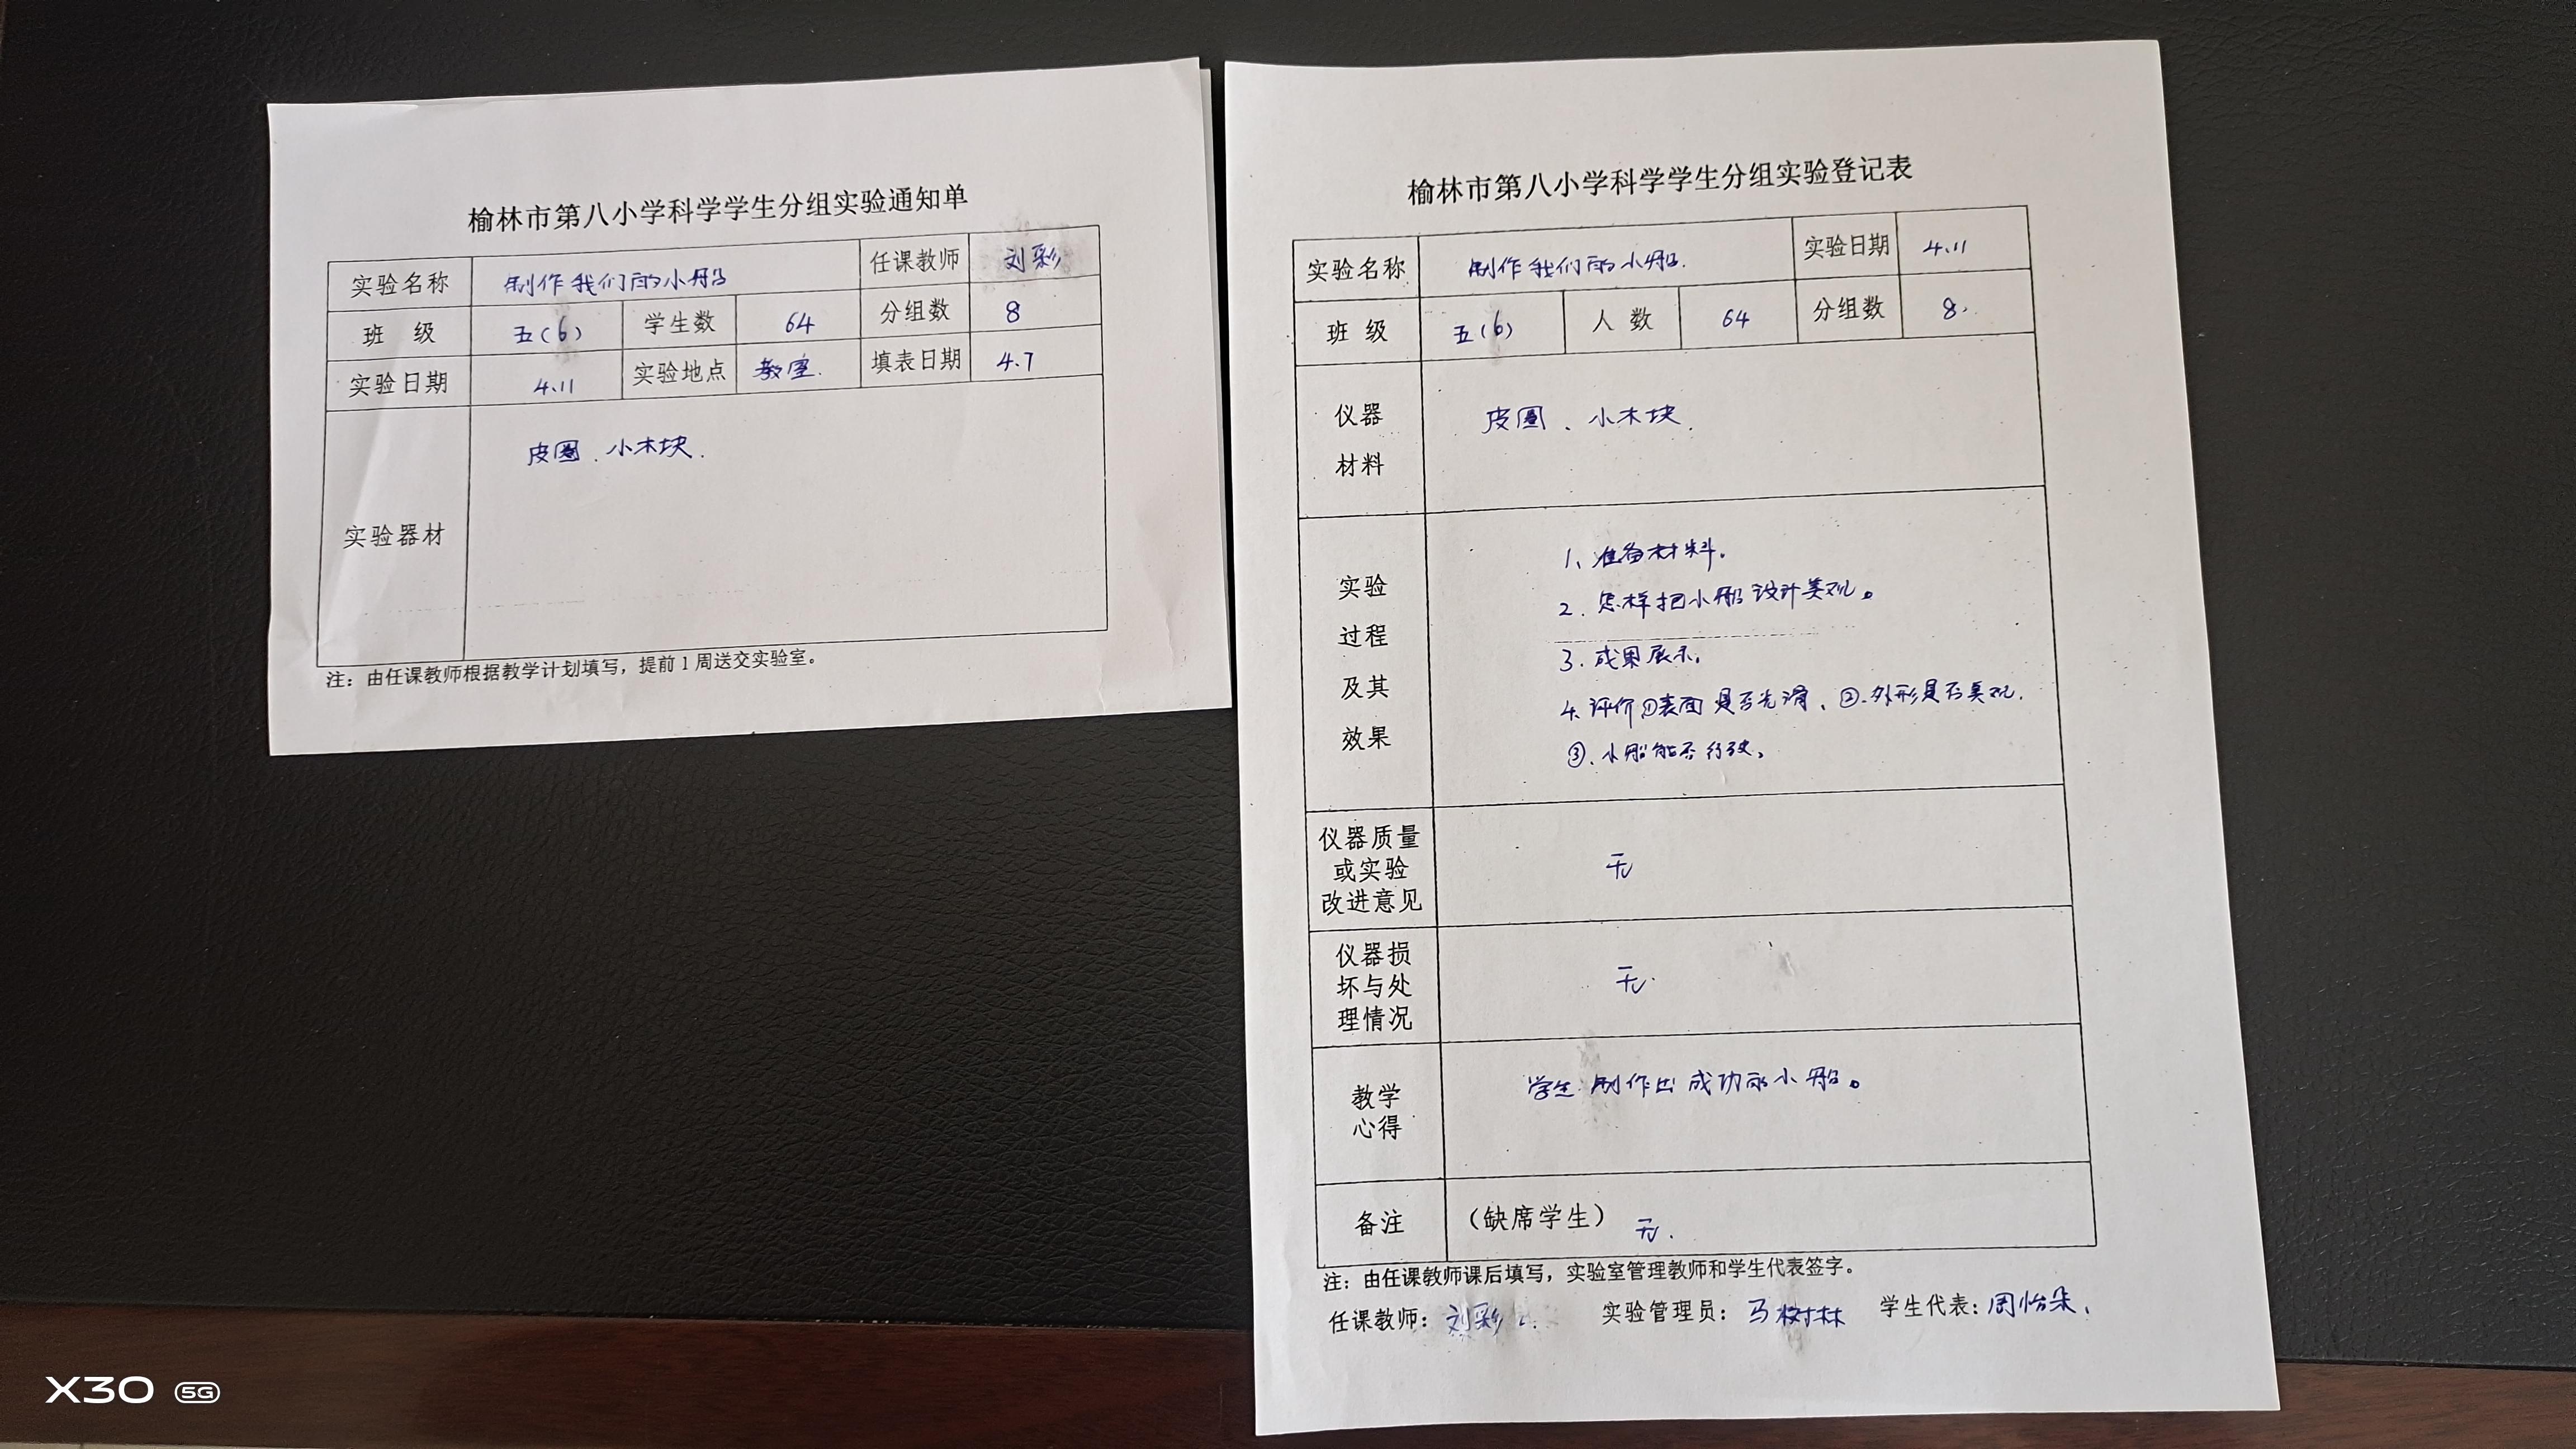 榆林市第八小学科学学生分组实验通知单
实验名称 制作我们的小船 任课教师 刘彩
班 级 五(6) 学生数 64 分组数 8
实验日期 4.11 实验地点 教室. 填表日期 4.7
实验器材 皮圈、小木块.
注：由任课教师根据教学计划填写，提前1周送交实验室。
榆林市第八小学科学学生分组实验登记表
实验名称 制作我们的小船. 实验日期 4.11
班 级 五(6) 人 数 64 分组数 8.
仪器
材料
皮圈、小木块.
实验
过程
及其
效果
1、准备材料.
2. 怎样把小船设计美观。
3. 成果展示.
4. 评价①表面是否光滑、②.外形是否美观.
③.小船能否行驶.
仪器质量
或实验
改进意见
无
仪器损
坏与处
理情况
无.
教学
心得
学生制作出成功的小船。
备注 （缺席学生） 无.
注：由任课教师课后填写，实验室管理教师和学生代表签字。
任课教师：刘彩 实验管理员：马树林 学生代表：周怡朵.
X30 5G